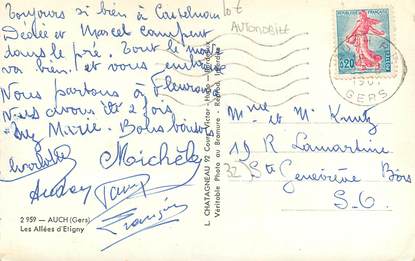 Toujours si bien à Castelnau
Dédée et Marcel campent
dans le pré. Tout le monde
va bien. et vous embrasse
Nous partons à Fleurance
Nous avons été 2 fois
Marie. Bons baisers
Michèle
Audrey
Françoise
2 959 - AUCH (Gers)
Les Allées d'Etigny
L. CHATAGNEAU 92 Cours Victor-Hugo - Bordeaux
Véritable Photo au Bromure - Reprod. Interdite
AUTOMOBILE
POSTES FRANÇAISE
0,20
GERS
Mme et M. Kuntz
19 R Lamartine
32
Ste Geneviève Bois
S.O.